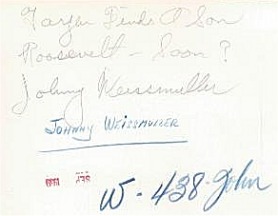 Tarzan Finds A Son
Roosevelt - Soon ?
Johnny Weissmuller
JOHNNY WEISSMULLER
W - 438 - John